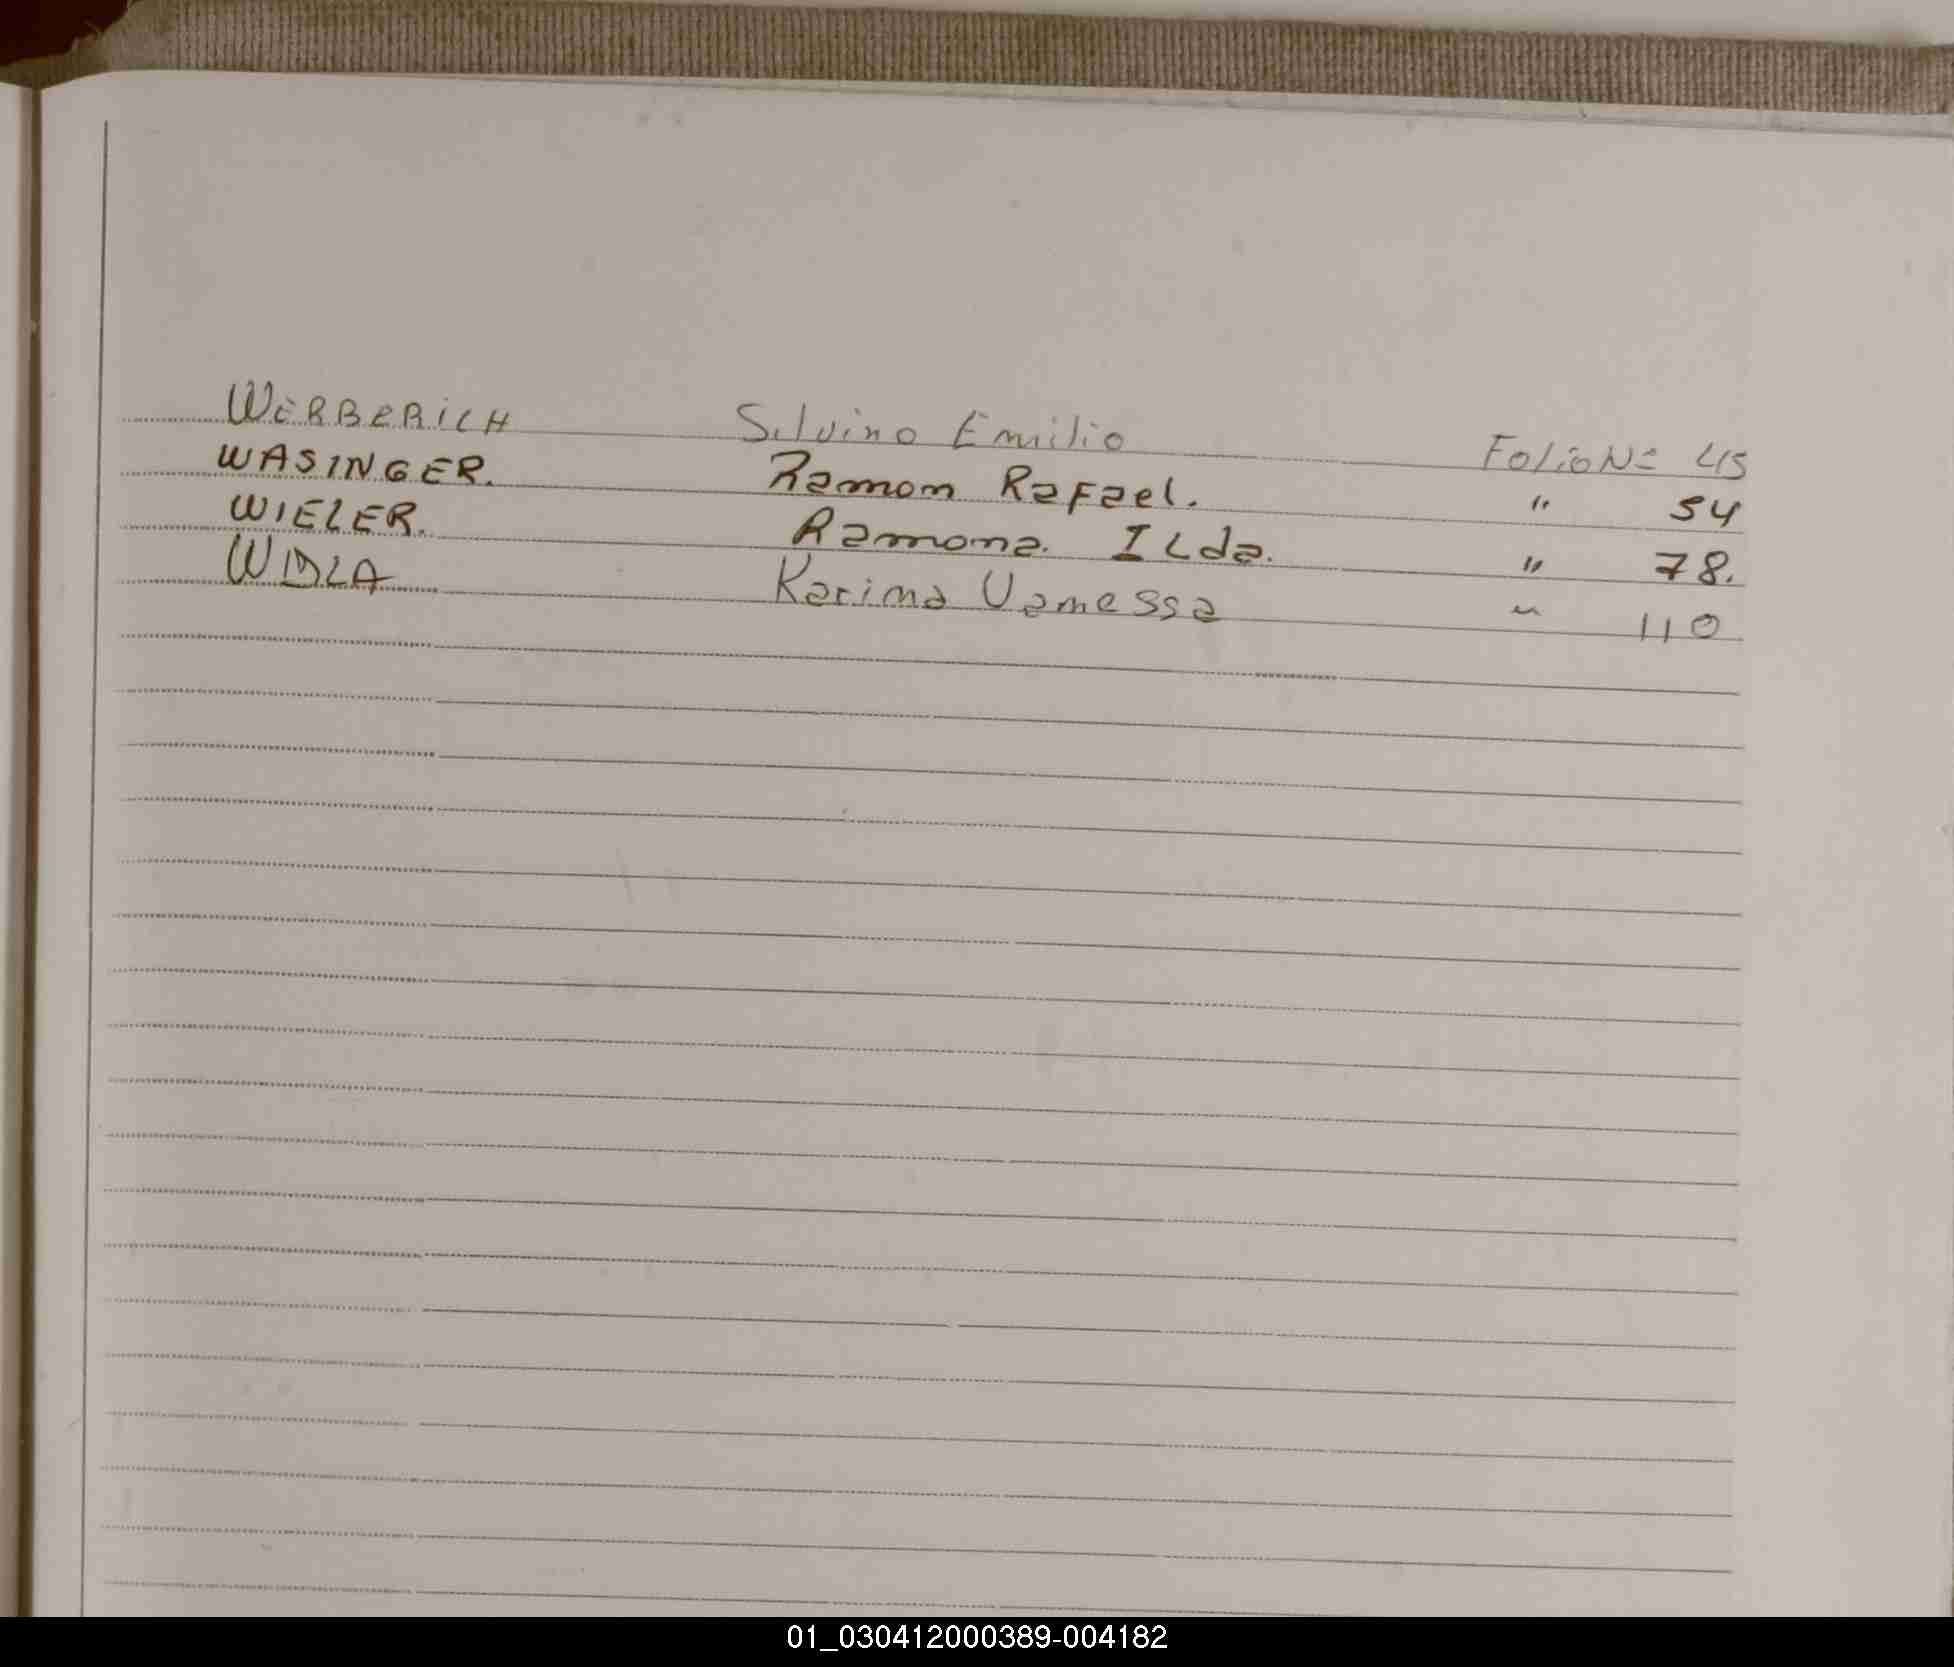 WERBERICH Silvino Emilio Folio Nº 45
WASINGER. Ramon Rafael. " 54
WIELER. Ramona. ILda. " 78.
Karina Vanessa " 110
01_030412000389-004182